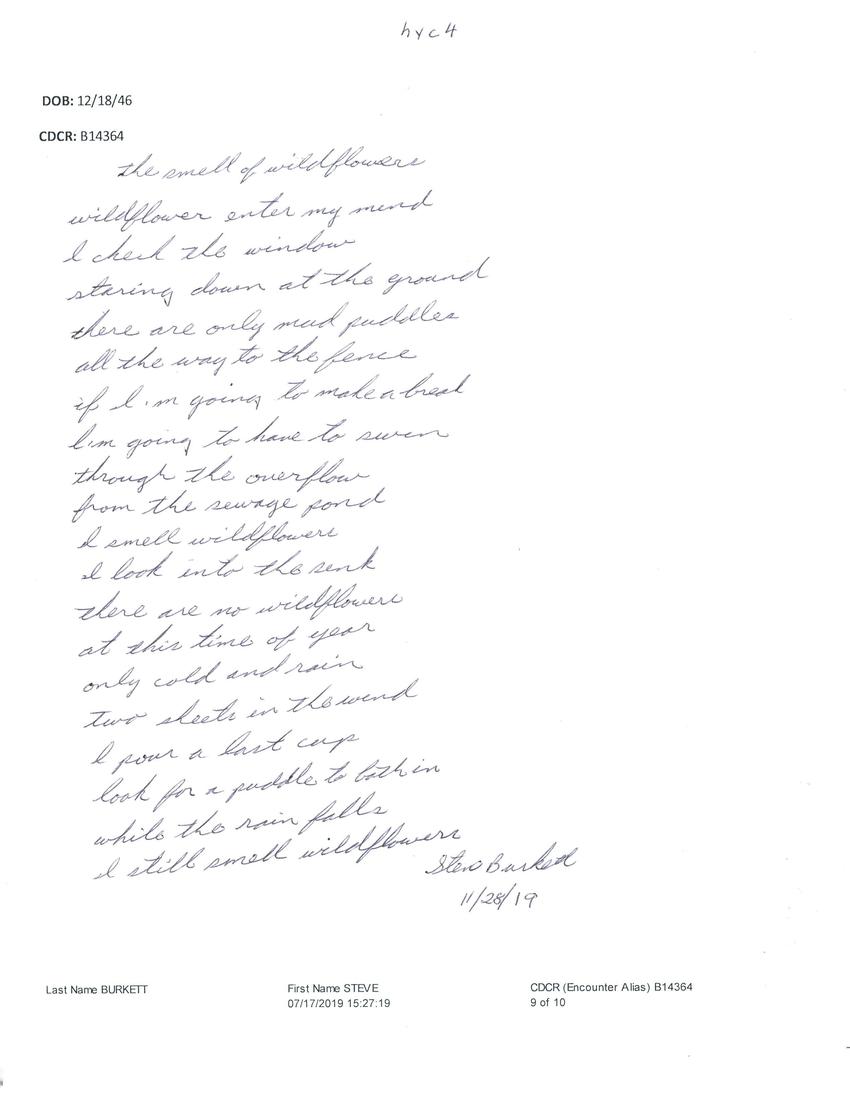 hyc4
DOB: 12/18/46
CDCR: B14364
the smell of wildflowers
wildflower enter my mind
I check the window
staring down at the ground
there are only mud puddles
all the way to the fence
if I'm going to make a break
I'm going to have to swim
through the overflow
from the sewage pond
I smell wildflowers
I look into the sink
there are no wildflowers
at this time of year
only cold and rain
two sheets in the wind
I pour a last cup
look for a puddle to bath in
while the rain falls
I still smell wildflowers
Steve Burkett
11/28/19
Last Name BURKETT First Name STEVE CDCR (Encounter Alias) B14364
07/17/2019 15:27:19 9 of 10